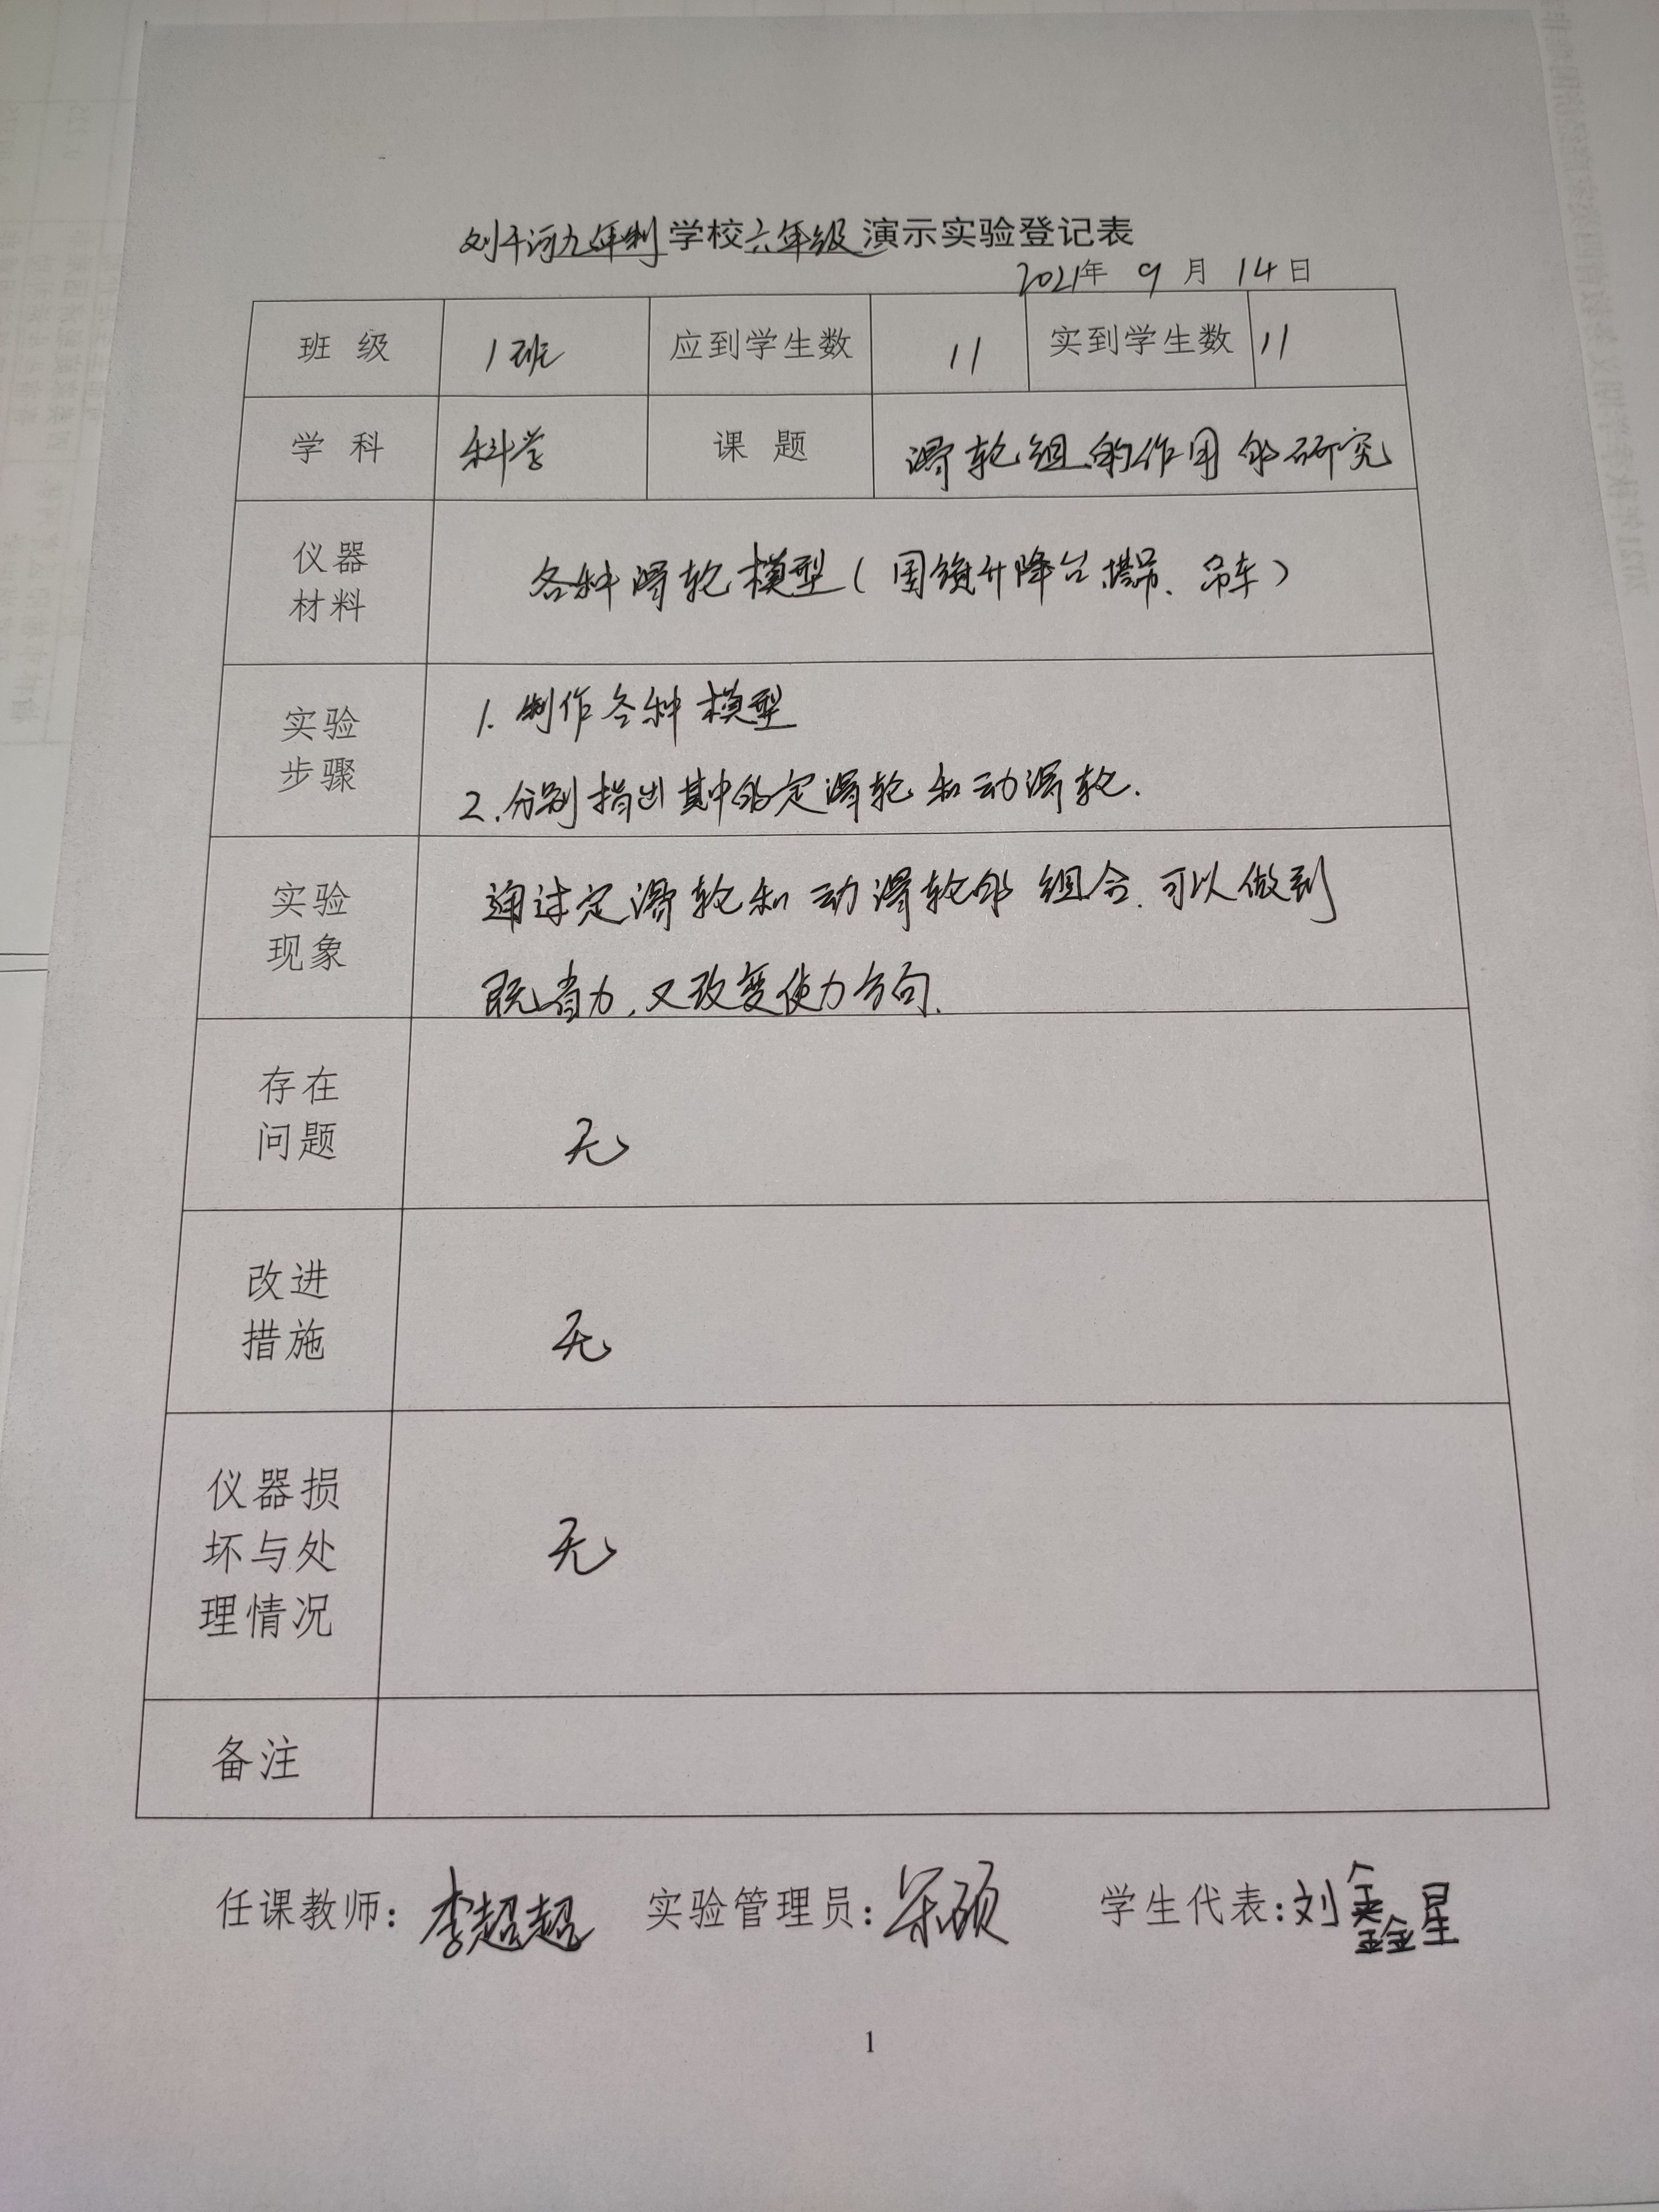 刘千河九年制学校六年级演示实验登记表
2021年 9 月 14 日
班 级 1班 应到学生数 11 实到学生数 11
学 科 科学 课 题 滑轮组的作用的研究
仪器
材料
各种滑轮模型(国旗升降台、塔吊、吊车)
实验
步骤
1. 制作各种模型
2. 分别指出其中的定滑轮和动滑轮.
实验
现象
通过定滑轮和动滑轮的组合.可以做到
既省力,又改变使力方向.
存在
问题
无
改进
措施
无
仪器损
坏与处
理情况
无
备注
任课教师:李超超 实验管理员:宋硕 学生代表:刘鑫星
1